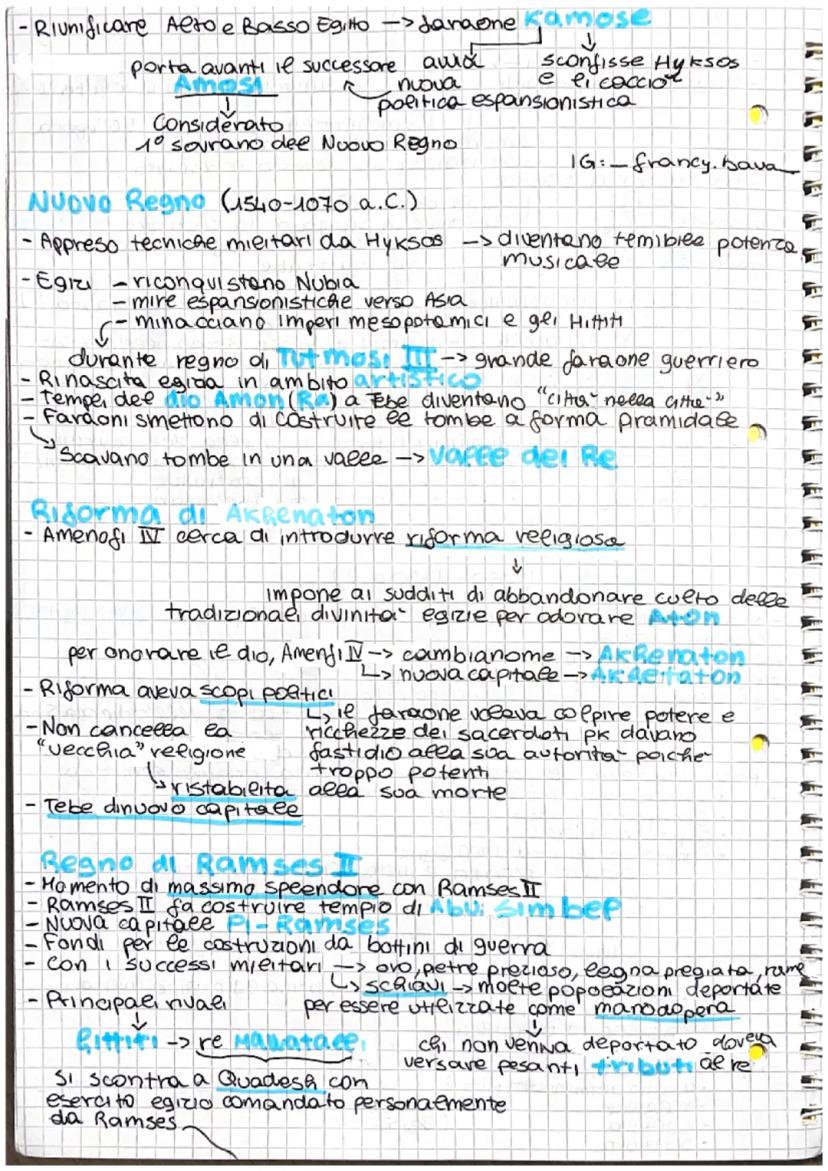 - Riunificare Alto e Basso Egitto -> faraone Kamose
porta avanti il successore Amosi
avvia nuova politica espansionistica
sconfisse Hyksos e li cacciò
Considerato
1° sovrano del Nuovo Regno
IG: _francy.bava_
Nuovo Regno (1540-1070 a.C.)
- Appreso tecniche militari da Hyksos -> diventano temibile potenza
musicale
- Egizi - riconquistano Nubia
- mire espansionistiche verso Asia
- minacciano imperi mesopotamici e gli Hittiti
durante regno di Tutmosi III -> grande faraone guerriero
- Rinascita egizia in ambito artistico
- Templi del dio Amon (Ra) a Tebe diventano "città nella città"
- Faraoni smettono di costruite le tombe a forma piramidale
Scavano tombe in una valle -> Valle dei Re
Riforma di Akhenaton
- Amenofi IV cerca di introdurre riforma religiosa
impone ai sudditi di abbandonare culto delle
tradizionali divinità egizie per adorare Aton
per onorare il dio, Amenfi IV -> cambia nome -> Akhenaton
-> nuova capitale -> Akhetaton
- Riforma aveva scopi politici
il faraone voleva colpire potere e
ricchezze dei sacerdoti pk davano
fastidio alla sua autorità poiché
troppo potenti
- Non cancella la
"vecchia" religione
ristabilita alla sua morte
- Tebe dinuovo capitale
Regno di Ramses II
- Momento di massimo splendore con Ramses II
- Ramses II fa costruire tempio di Abu Simbel
- Nuova capitale Pi-Ramses
- Fondi per le costruzioni da bottini di guerra
- Con i successi militari -> oro, petre prezioso, legna pregiata, rame
-> schiavi -> molte popolazioni deportate
per essere utilizzate come manodopera
- Principali rivali
Hittiti -> re Muwatalli
chi non veniva deportato doveva
versare pesanti tributi al re
si scontra a Quadesh con
esercito egizio comandato personalmente
da Ramses